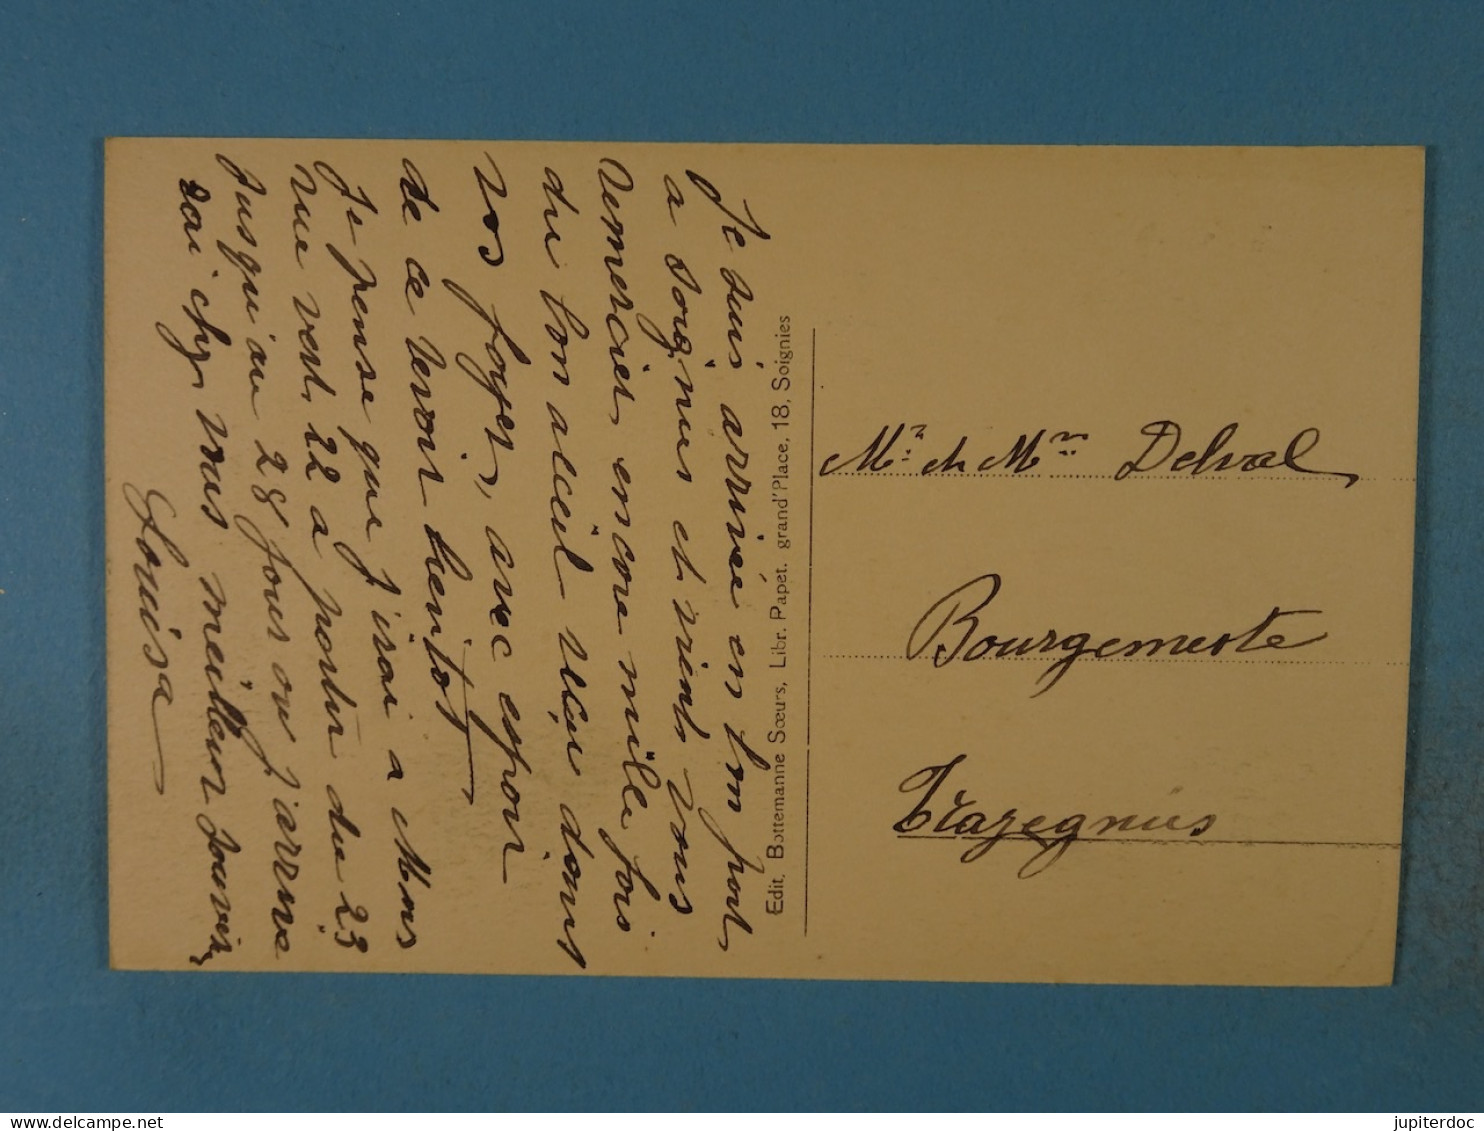 Je suis arrivée en bon port
a Soignies et viens vous
remercier encore mille fois
du bon acceil reçu dans
vos foyer, avec espoir
de ce revoir bientot,
Je pense que j'irai a Mons
rue verte 22 a partir du 23
Jusqu'au 28 jour ou j'arrive
mes meilleur Souvenir
Louisa
Edit. Bottemanne Sœurs, Libr. Papet. grand'Place, 18, Soignies
Mr et Mme Delval
Bourgemestre
Trazegnies
jupiterdoc